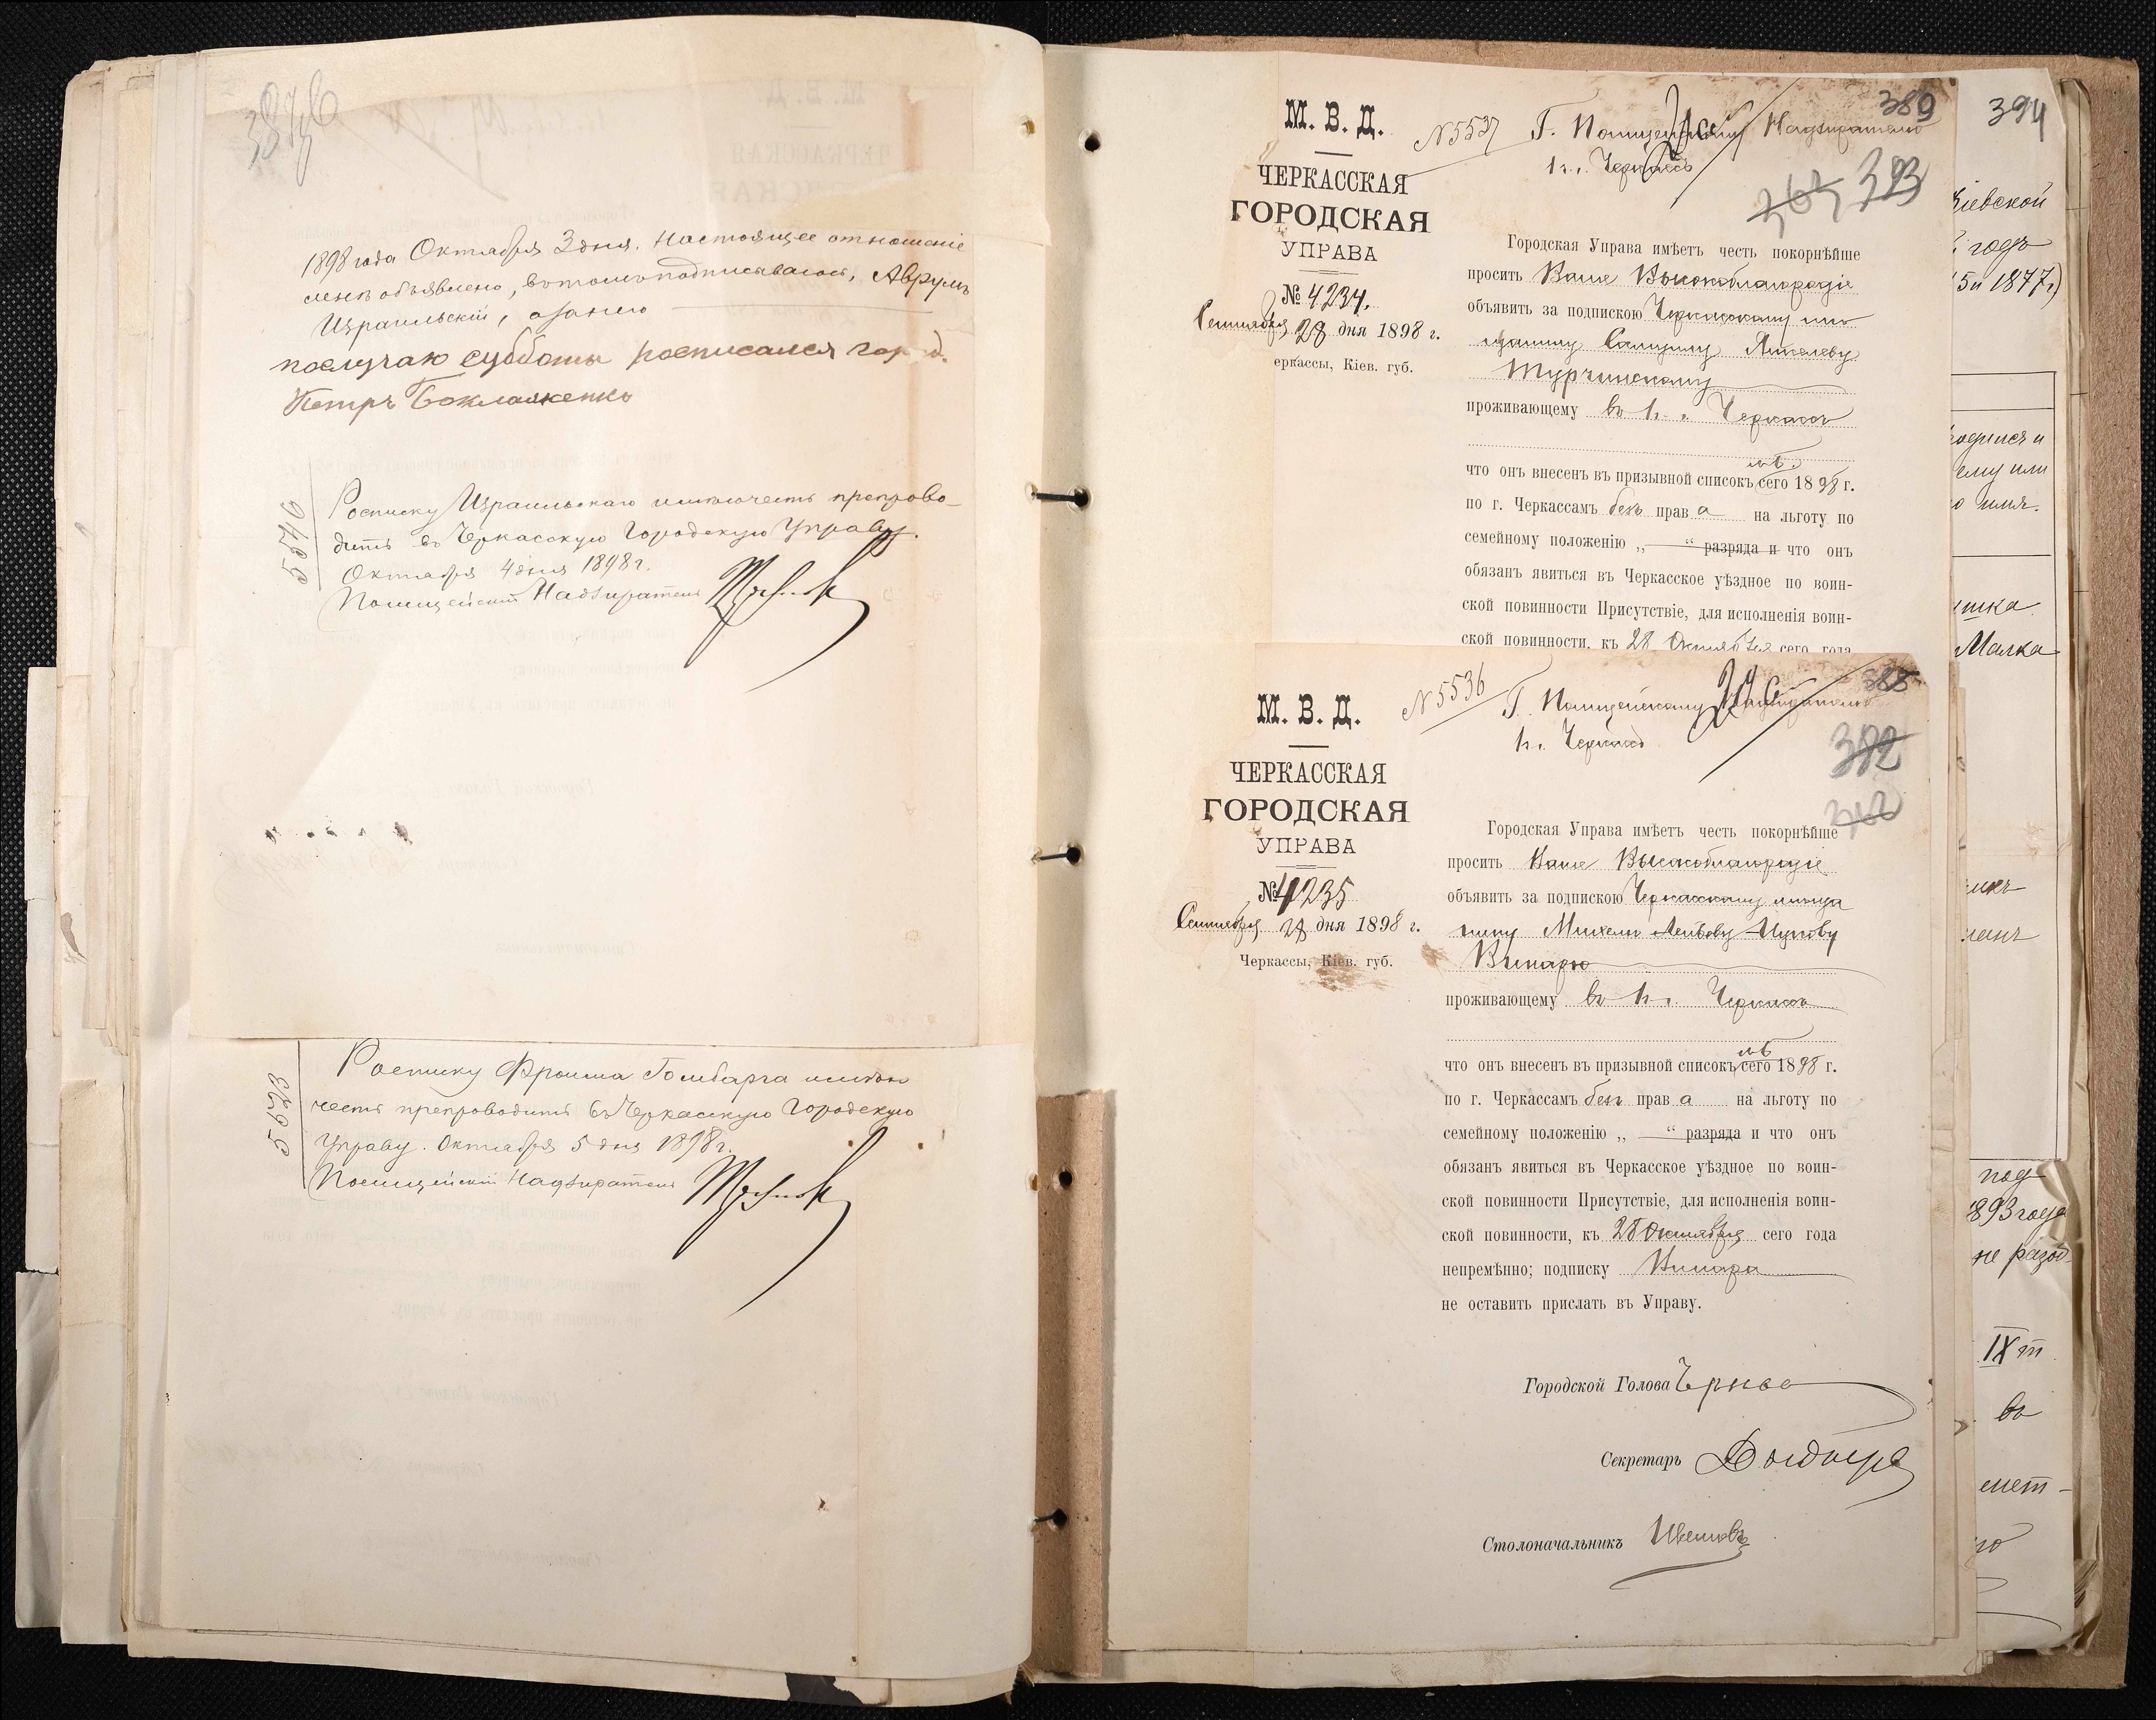 1898 года Октября 3 дня. Настоящее отношеніе
мнѣ объявлено, въ томъ подписываюсь, Аврумъ
Израильскій, а за него
послучаю субботы росписался город.
Петръ Баклаженко
5540
Росписку Израильскаго имѣю честь препрово-
дить въ Черкасскую Городскую Управу.
Октября 4 дня 1898 г.
Полицейскій Надзиратель
Росписку Фроима Гомбарга имѣю
честь препроводить въ Черкасскую Городскую
Управу. Октября 5 дня 1898 г.
Полицейскій Надзиратель
389
М. В. Д.
ЧЕРКАССКАЯ
ГОРОДСКАЯ
УПРАВА
№ 4234.
Сентября 28 дня 1898 г.
еркассы, Кіев. губ.
N 5537
Г. Полицейскому Надзирателю
1 ч. г. Черкассъ
393
Городская Управа имѣетъ честь покорнѣйше
просить Ваше Высокоблагородіе
объявить за подпискою Черкасскому мѣ
щанину Янкелеву
Турчинскому
проживающему въ г. Черкассахъ
что онъ внесенъ въ призывной списокъ сего 1898 г.
по г. Черкассамъ безъ права на льготу по
семейному положенію „ — “ разряда и что онъ
обязанъ явиться въ Черкасское уѣздное по воин-
ской повинности Присутствіе, для исполненія воин-
ской повинности, къ 28 Октября сего года
М. В. Д.
ЧЕРКАССКАЯ
ГОРОДСКАЯ
УПРАВА
№ 4235
Сентября 28 дня 1898 г.
Черкассы, Кіев. губ.
N 5536
Г. Полицейскому Надзирателю
г. Черкассъ
382
Городская Управа имѣетъ честь покорнѣйше
просить Ваше Высокоблагородіе
объявить за подпискою Черкасскому мѣща
нину Михелю Лейбову-Ицкову
Винарю
проживающему въ г. Черкассахъ
что онъ внесенъ въ призывной списокъ сего 1898 г.
по г. Черкассамъ безъ права на льготу по
семейному положенію „ — “ разряда и что онъ
обязанъ явиться въ Черкасское уѣздное по воин-
ской повинности Присутствіе, для исполненія воин-
ской повинности, къ 28 Октября сего года
непремѣнно; подписку Винаря
не оставить прислать въ Управу.
Городской Голова
Секретарь
Столоначальникъ
394
Кіевской
годъ
5 и 1877 г.)
ему или
имя.
Малка
под
1893 года
не разой
IX т
въ